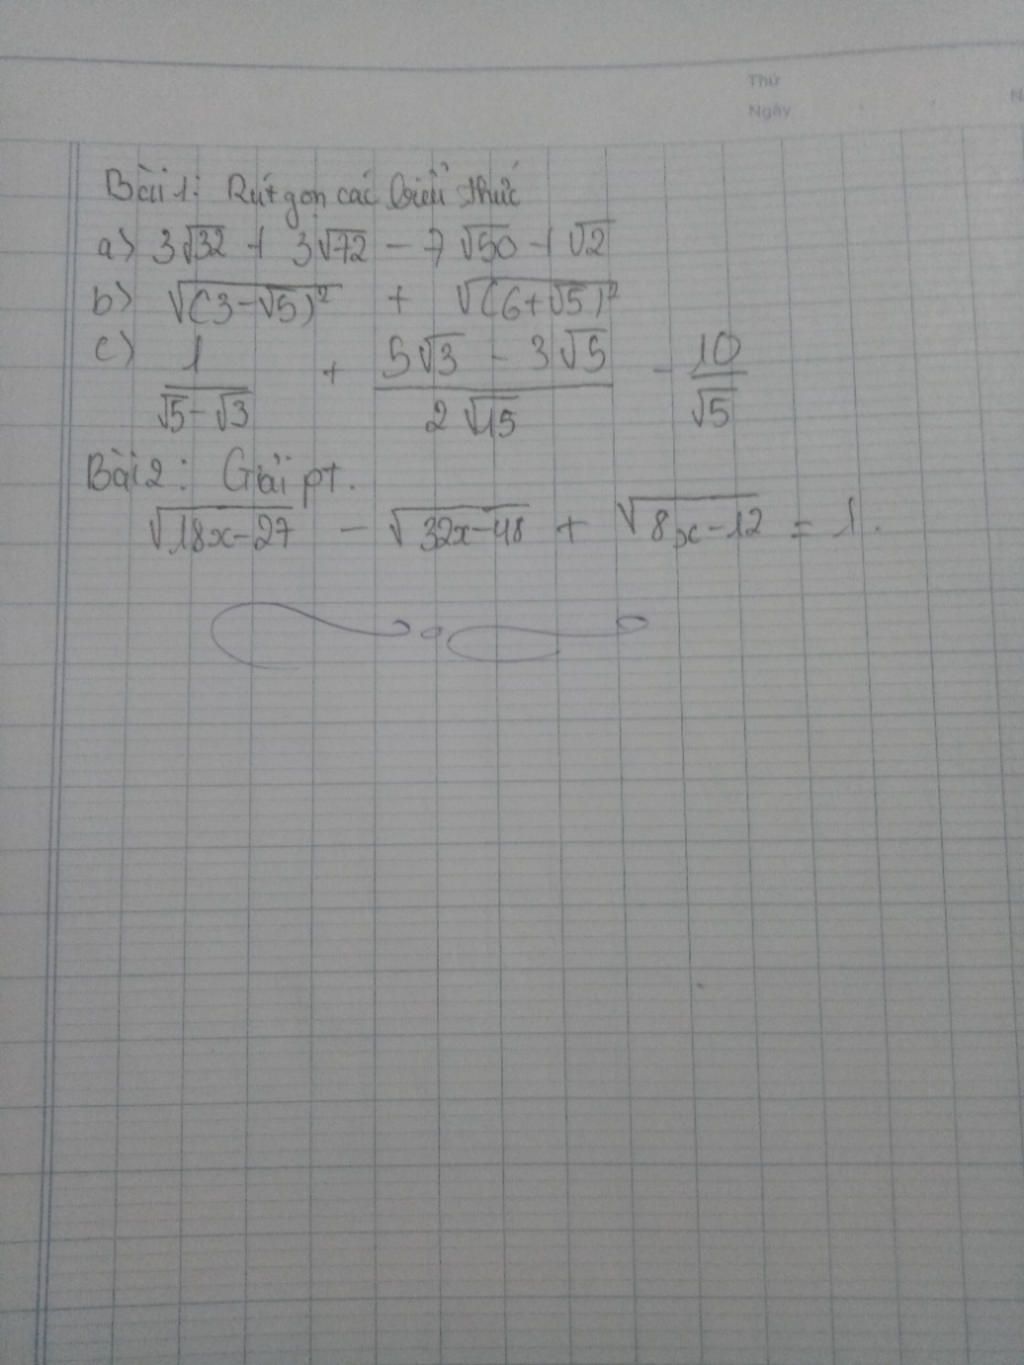 Thứ
Ngày
N
Bài 1: Rút gọn các biểu thức
a) 3√32 + 3√72 - 7√50 + √2
b) √(3-√5)² + √(6+√5)²
c) 1/(√5-√3) + (5√3 - 3√5)/(2√15) - 10/√5
Bài 2: Giải pt.
√18x-27 - √32x-48 + √8x-12 = 1.